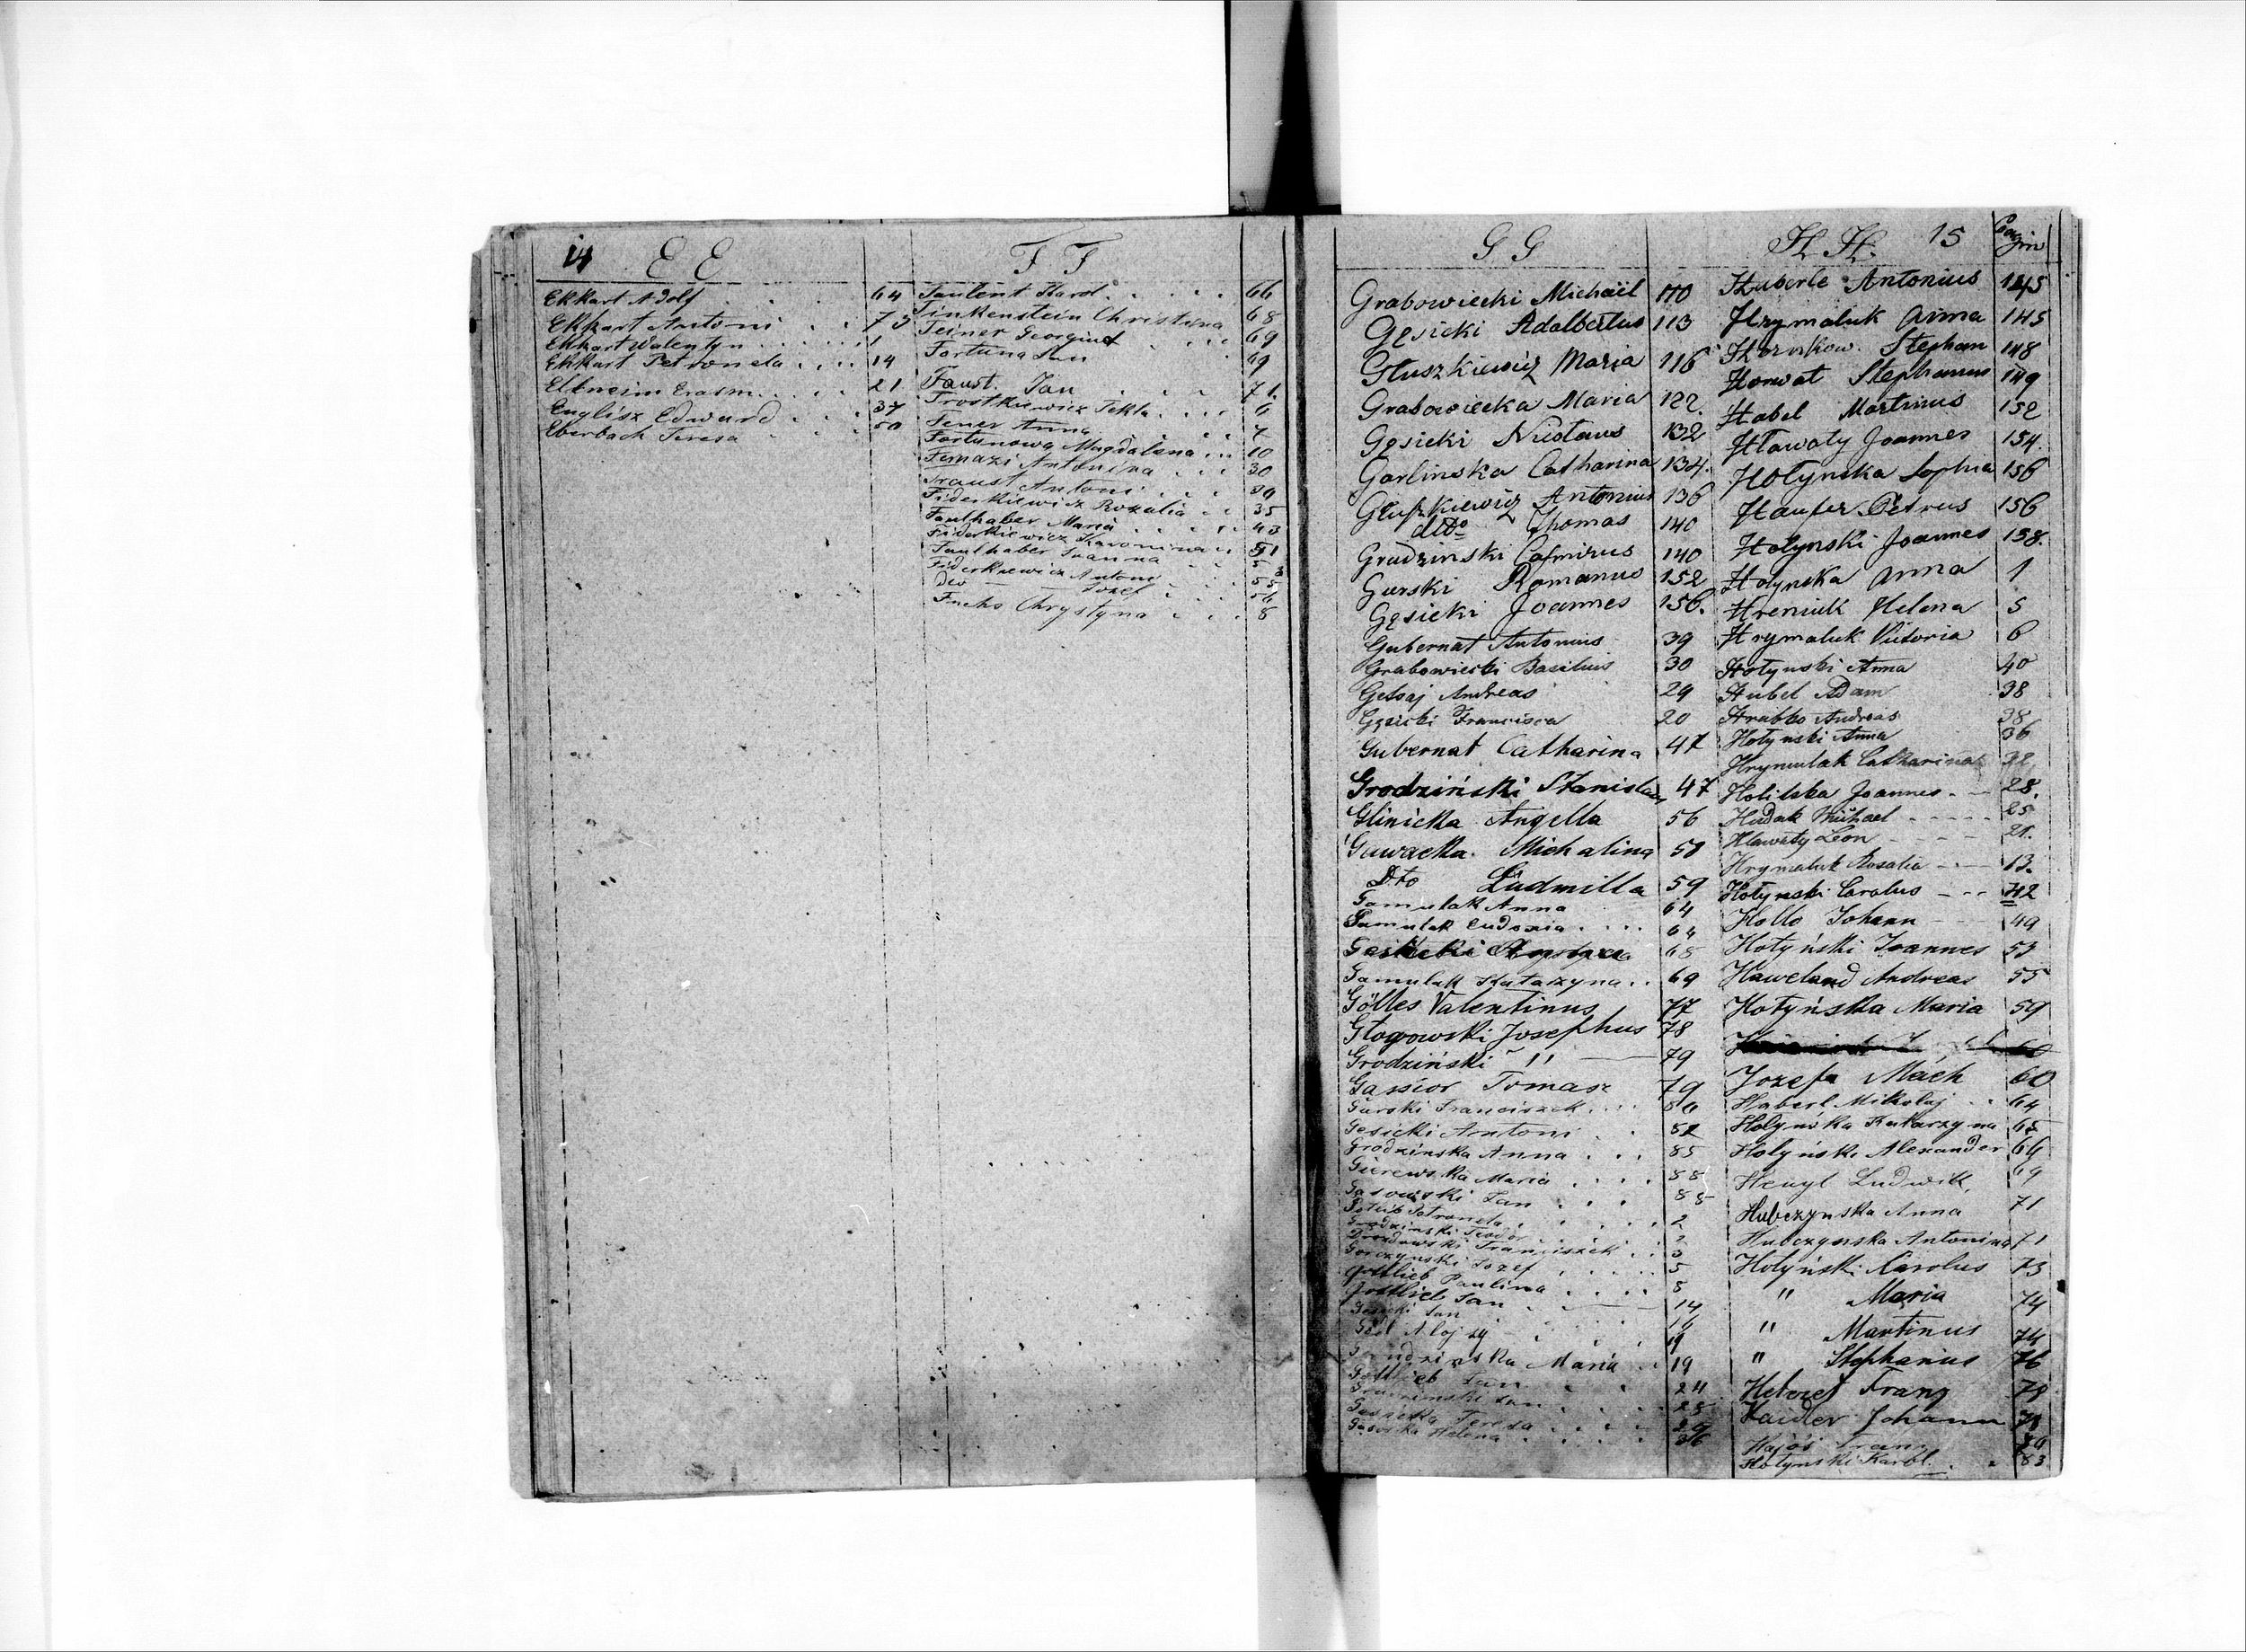 14 E E
Ekkart Adolf . . . 64
Ekkart Antoni . . 73
Ekkart Walentyn . . . . 1
Ekkart Petronela . . . 14
Elkneim Erasm. . . . 21
Englisz Edward . . . 37
Eberbach Teresa . . . 50
F F
Taulent Karol. . . . 66
Finkenstein Christina 68
Feiner Georgius . . . 69
Fortuna Jan 69
Faust. Jan . . . 71.
Frostkiewicz Tekla . . . 6
Fener Anna . . . 7
Fortunowa Magdalena . . . 10
Femazi Antonina . . . 30
Fraust Antoni . . . 30
Fiderkiewicz Rozalia . . 35
Faulhaber Maria . . . . 43
Fiderkiewicz Karonina . . 51
Faulhaber Joanna . . . 53
Fiderkiewicz Antoni . . . 55
Dto — Jozef . . . 56
Fuchs Chrystyna . . . 8
G G
Grabowiecki Michaël 110
Gęsicki Adalbertus 113
Głuszkiewicz Maria 116
Grabowiecka Maria 122.
Gęsicki Nicolaus 132
Garlinska Catharina 134.
Głuszkiewicz Antonius 136
dtto Thomas 140
Grudzinski Casmirus 140
Gurski Romanus 152
Gęsicki Joannes 156.
Gubernat Antonius 39
Grabowiecki Basilius 30
Getsaj Andreas 29
Gęsicki Francisca 20
Gubernat Catharina 47
Grodziński Stanislaus 47
Glinicka Angella 56
Gawacka Michalina 58
Dto Ludmilla 59
Gamulak Anna 64
Gamulak Eudoxia . . . 64
Gesicki 68
Gamulak Katarzyna . . 69
Gölles Valentinus 77
Głogowski Josephus 78
Grodziński " — 79
Gąssior Tomasz 79
Gurski Franciszek . . . 80
Gesicki Antoni . . 82
Grodzinska Anna . . . 85
Gierewska Maria . . . . 88
Gasowski Jan . . . 88
Petronela . . . . 2
Grodzinski Teodor . . . . 2
Drozdowski Franciszek . . 3
Gorczynski Jozef . . . . 5
Gottlieb Paulina . . . . 8
Gottlieb Jan . . — 14
Gesicki Jan . . . . 16
Göd Alojzy . . . 19
Grudzinska Maria . . 19
Gottlieb Jan . . 24
Jan . . . . 28
Gesicka Teresa . . . 29
Helena . . . . 36
H H. 15 Pagin
Huberle Antonius 145
Hrymaluk Anna 145
Stephan 148
Horwat Stephanus 149
Habel Martinus 152
Hławaty Joannes 154.
Hołynska Sophia 156
Haufer Petrus 156
Hołynski Joannes 158.
Hołynska Anna 1
Hreniuk Helena 5
Hrymaluk Victoria 6
Hołynski Anna 40
Hubel Adam 38
Hrabko Andreas 38
Hołynski Anna 36
Hrymulak Catharina 32
Holitska Joannes . — 28.
Hudak Michael - - - - - 25
Hlawaty Leon - - - 21.
Hrymaluk Rosalia — - — 13.
Hołynski Carolus — - - 42
Hollo Johann - - - 49
Hołyński Joannes 53
Haweland Andreas 55
Hołyńska Maria 59
Jozefa Mach 60
Haberl Mikołaj . . 64
Hołyńska Katarzyna 65
Hołyński Alexander 66
Heugl Ludwik, 69
Hubczynska Anna 71
Hubczynska Antonina 71
Hołyński Carolus 73
" Maria 74
" Martinus 74
" Stephanius 76
Franz 78
Haidler Johann 78
Hajós Franz 80
Hołynski Karol. . . 83